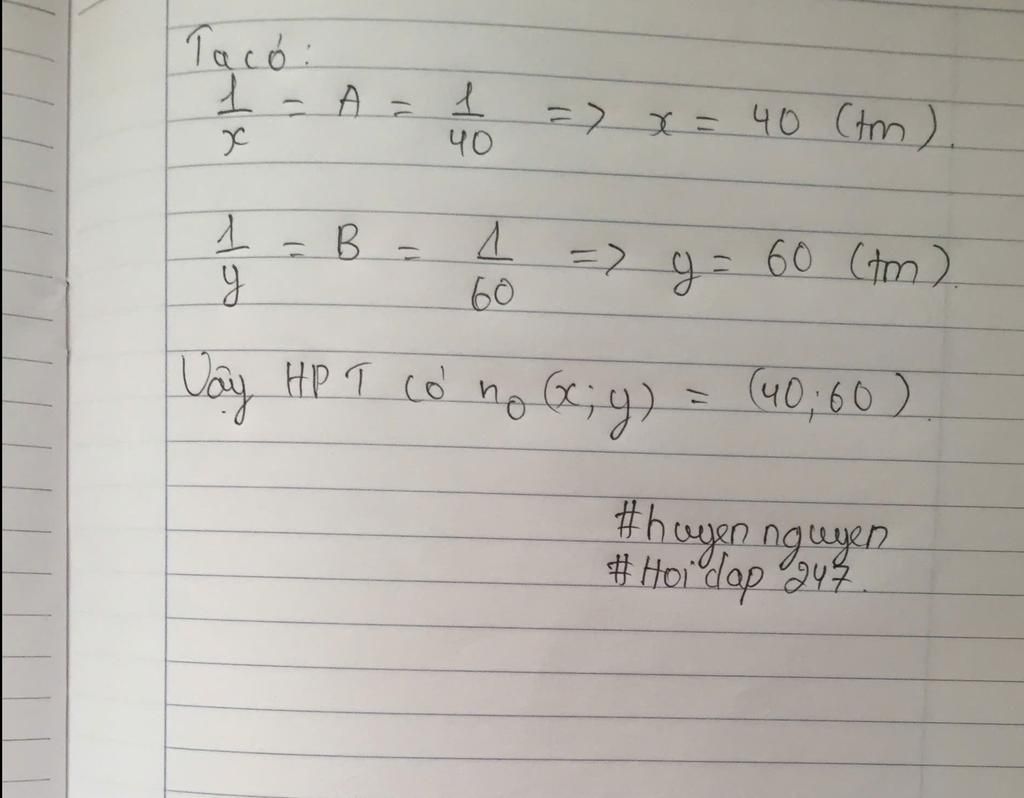 Ta có:
1/x = A = 1/40 => x = 40 (tm).
1/y = B = 1/60 => y = 60 (tm).
Vậy HPT có n₀ (x;y) = (40;60).
#huyen nguyen
#Hoi dap 247.